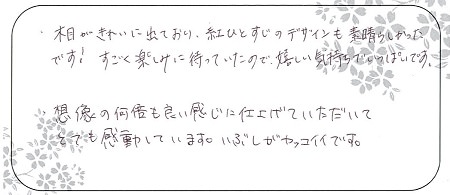 ・木目がきれいに出ており、紅ひとすじのデザインも素晴らしかった
です! すごく楽しみに待っていたので、嬉しい気持ちでいっぱいです。
・想像の何倍も良い感じに仕上げていただいて
とても感動しています。いぶしがカッコイイです。